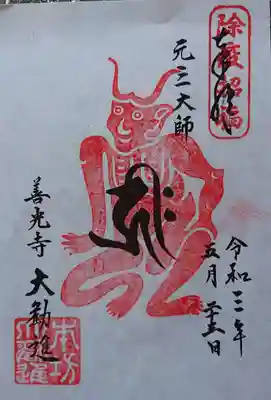 除疫招福
奉拝
元三大師
令和三年
五月二十三日
善光寺
大勧進